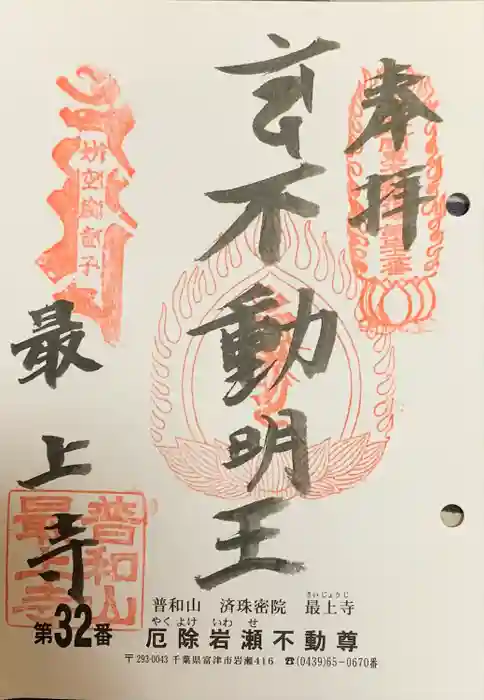 奉拝
不動明王
最上寺
普和山
最上寺
第32番
普和山 済珠密院 最上寺
さいじょうじ
厄除岩瀬不動尊
やくよけ いわせ
〒293-0043 千葉県富津市岩瀬416 ☎(0439)65-0670番